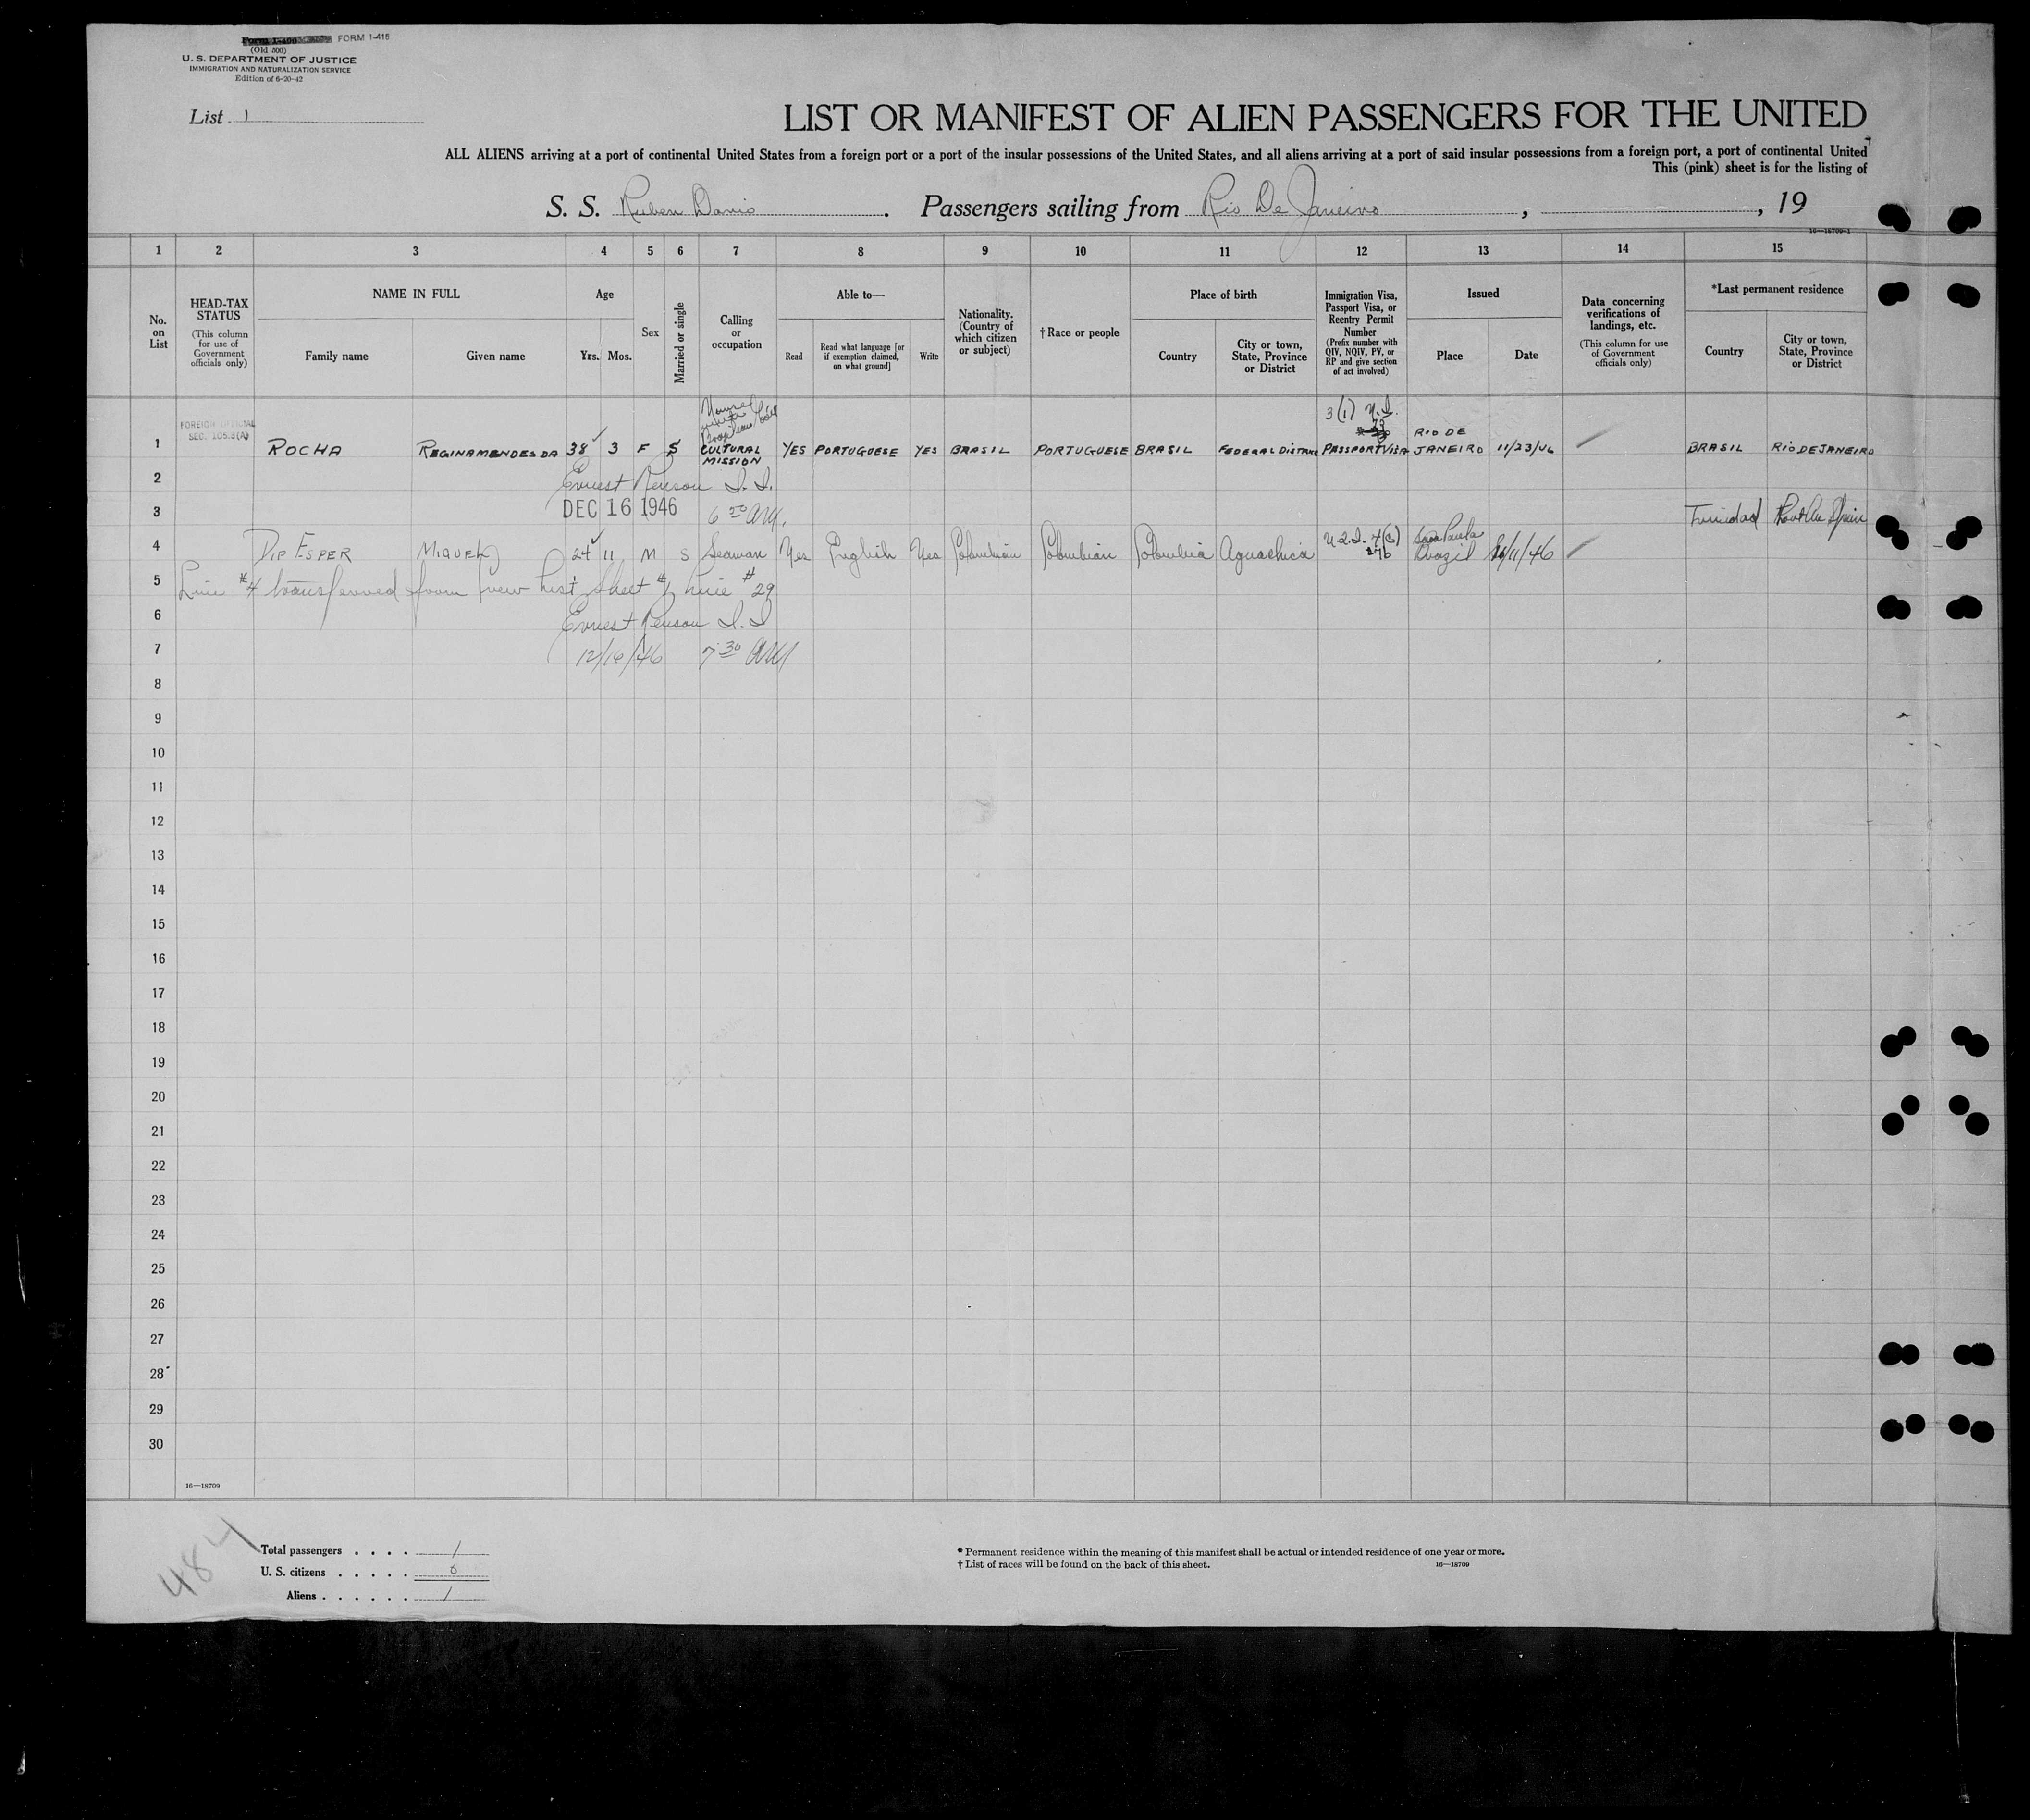 Form I-400 FORM I-418
(Old 500)
U. S. DEPARTMENT OF JUSTICE
IMMIGRATION AND NATURALIZATION SERVICE
Edition of 6-20-42
List 1
LIST OR MANIFEST OF ALIEN PASSENGERS FOR THE UNITED
ALL ALIENS arriving at a port of continental United States from a foreign port or a port of the insular possessions of the United States, and all aliens arriving at a port of said insular possessions from a foreign port, a port of continental United
This (pink) sheet is for the listing of
S. S. Reuben Davis. Passengers sailing from Rio De Janeiro, , 19
16—18709-1
1 2 3 4 5 6 7 8 9 10 11 12 13 14 15
No. on List
HEAD-TAX STATUS
(This column for use of Government officials only)
NAME IN FULL
Family name
Given name
Age
Yrs. Mos.
Sex
Married or single
Calling or occupation
Able to—
Read
Read what language [or if exemption claimed, on what ground]
Write
Nationality. (Country of which citizen or subject)
†Race or people
Place of birth
Country
City or town, State, Province or District
Immigration Visa, Passport Visa, or Reentry Permit Number
(Prefix number with QIV, NQIV, PV, or RP and give section of act involved)
Issued
Place
Date
Data concerning verifications of landings, etc.
(This column for use of Government officials only)
*Last permanent residence
Country
City or town, State, Province or District
FOREIGN OFFICIAL
SEC. 105.3(A)
3(1)
1 ROCHA REGINA MENDES DA 38 3 F S CULTURAL MISSION YES PORTUGUESE YES BRASIL PORTUGUESE BRASIL FEDERAL DISTRICT PASSPORT VISA RIO DE JANEIRO 11/23/46 BRASIL RIO DE JANEIRO
2 Ernest Renson I. I.
3 DEC 16 1946 6 30 AM. Trinidad Port Au Spain
4 DIP ESPER MIQUEL 24 11 M S Seaman Yes English Yes Colombian Colombian Colombia Aguachica 276 Sao Paulo Brazil 11/46
5 Line #4 transferred from crew list sheet #1 line #29
6 Ernest Renson I. I
7 12/16/46 7 30 AM
8
9
10
11
12
13
14
15
16
17
18
19
20
21
22
23
24
25
26
27
28
29
30
16—18709
484
Total passengers . . . . 1
U. S. citizens . . . . . 0
Aliens . . . . . . 1
* Permanent residence within the meaning of this manifest shall be actual or intended residence of one year or more.
† List of races will be found on the back of this sheet. 16—18709